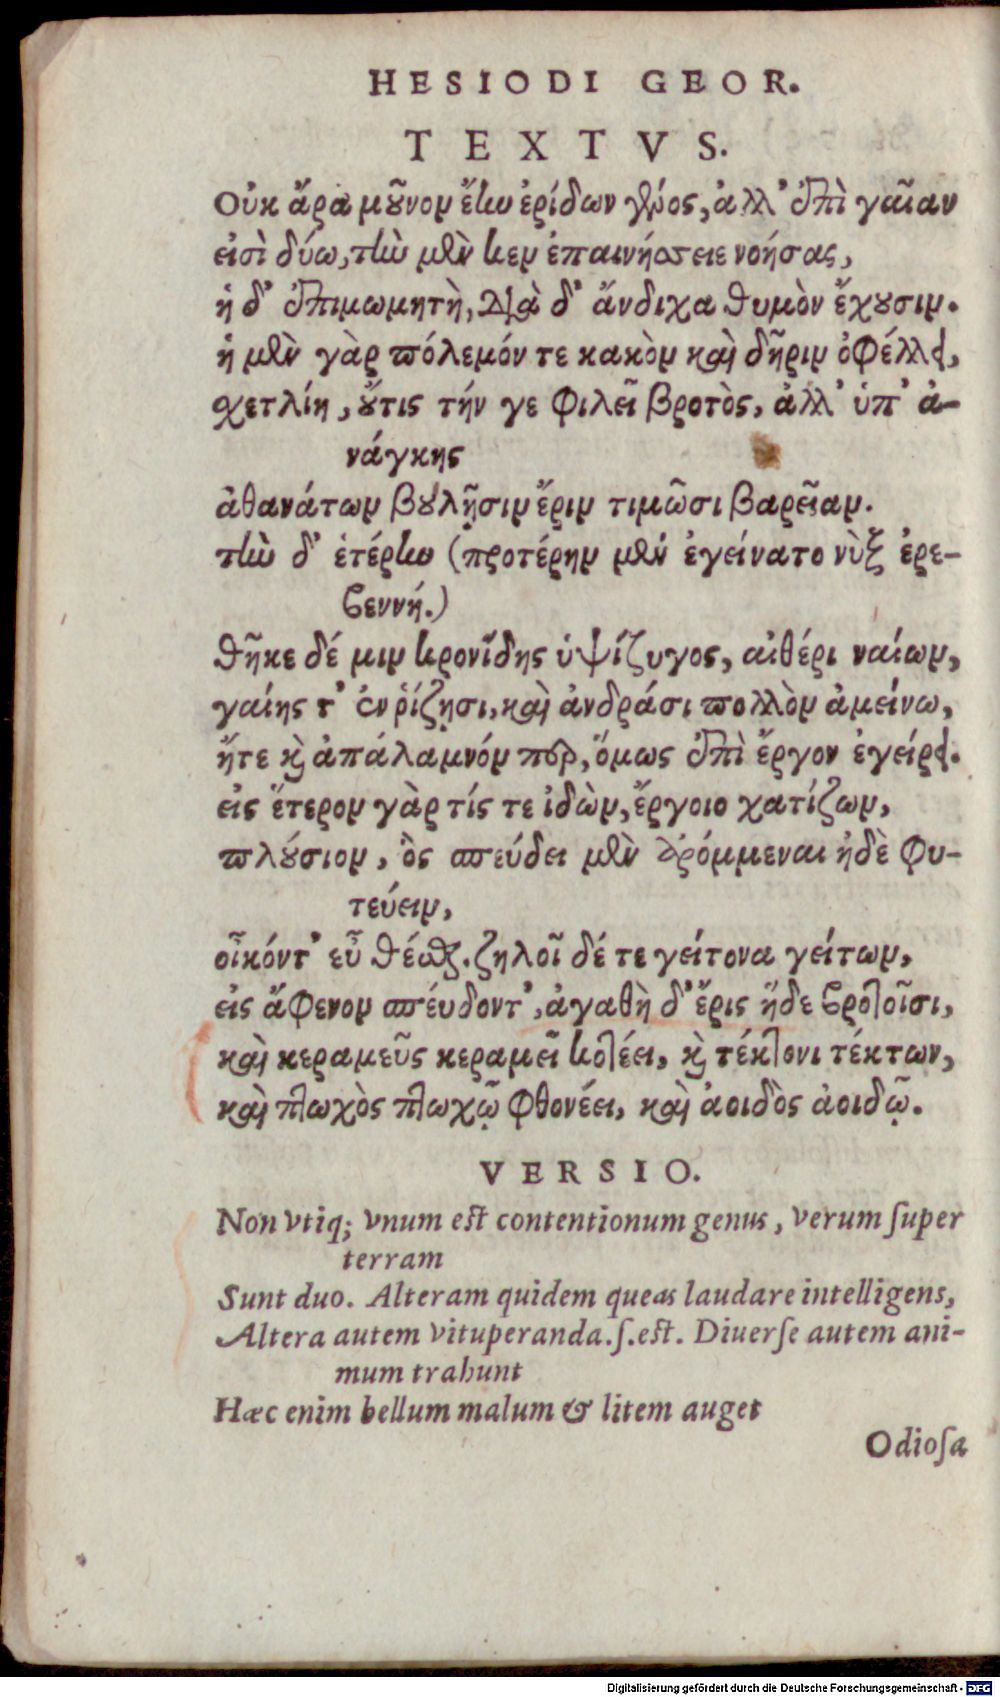 HESIODI GEOR.
TEXTVS.
Οὐκ ἄρα μοῦνον ἔην ἐρίδων γένος, ἀλλ' ἐπὶ γαῖαν
εἰσὶ δύω, τὴν μὲν κεν ἐπαινήσειε νοήσας,
ἡ δ' ἐπιμωμητὴ, διὰ δ' ἄνδιχα θυμὸν ἔχουσιν.
ἡ μὲν γὰρ πόλεμόν τε κακὸν καὶ δῆριν ὀφέλλει,
σχετλίη, οὔτις τήν γε φιλεῖ βροτὸς, ἀλλ' ὑπ' ἀ-
νάγκης
ἀθανάτων βουλῇσιν ἔριν τιμῶσι βαρεῖαν.
τὴν δ' ἑτέρην (προτέρην μὲν ἐγείνατο νὺξ ἐρε-
βεννή.)
θῆκε δέ μιν κρονίδης ὑψίζυγος, αἰθέρι ναίων,
γαίης τ' ἐν ῥίζῃσι, καὶ ἀνδράσι πολλὸν ἀμείνω,
ἥτε καὶ ἀπάλαμνόν περ, ὅμως ἐπὶ ἔργον ἐγείρει.
εἰς ἕτερον γὰρ τίς τε ἰδὼν, ἔργοιο χατίζων,
πλούσιον, ὃς σπεύδει μὲν ἀρόμμεναι ἠδὲ φυ-
τεύειν,
οἶκόντ' εὖ θέσθαι. ζηλοῖ δέ τε γείτονα γείτων,
εἰς ἄφενον σπέυδοντ', ἀγαθὴ δ' ἔρις ἥδε βροτοῖσι,
καὶ κεραμεῦς κεραμεῖ κοτέει, καὶ τέκτονι τέκτων,
καὶ πτωχὸς πτωχῷ φθονέει, καὶ ἀοιδὸς ἀοιδῷ.
VERSIO.
Non vtiq; vnum est contentionum genus, verum super
terram
Sunt duo. Alteram quidem queas laudare intelligens,
Altera autem vituperanda.ſ.est. Diuerſe autem ani-
mum trahunt
Hæc enim bellum malum & litem auget
Odioſa
Digitalisierung gefördert durch die Deutsche Forschungsgemeinschaft - DFG